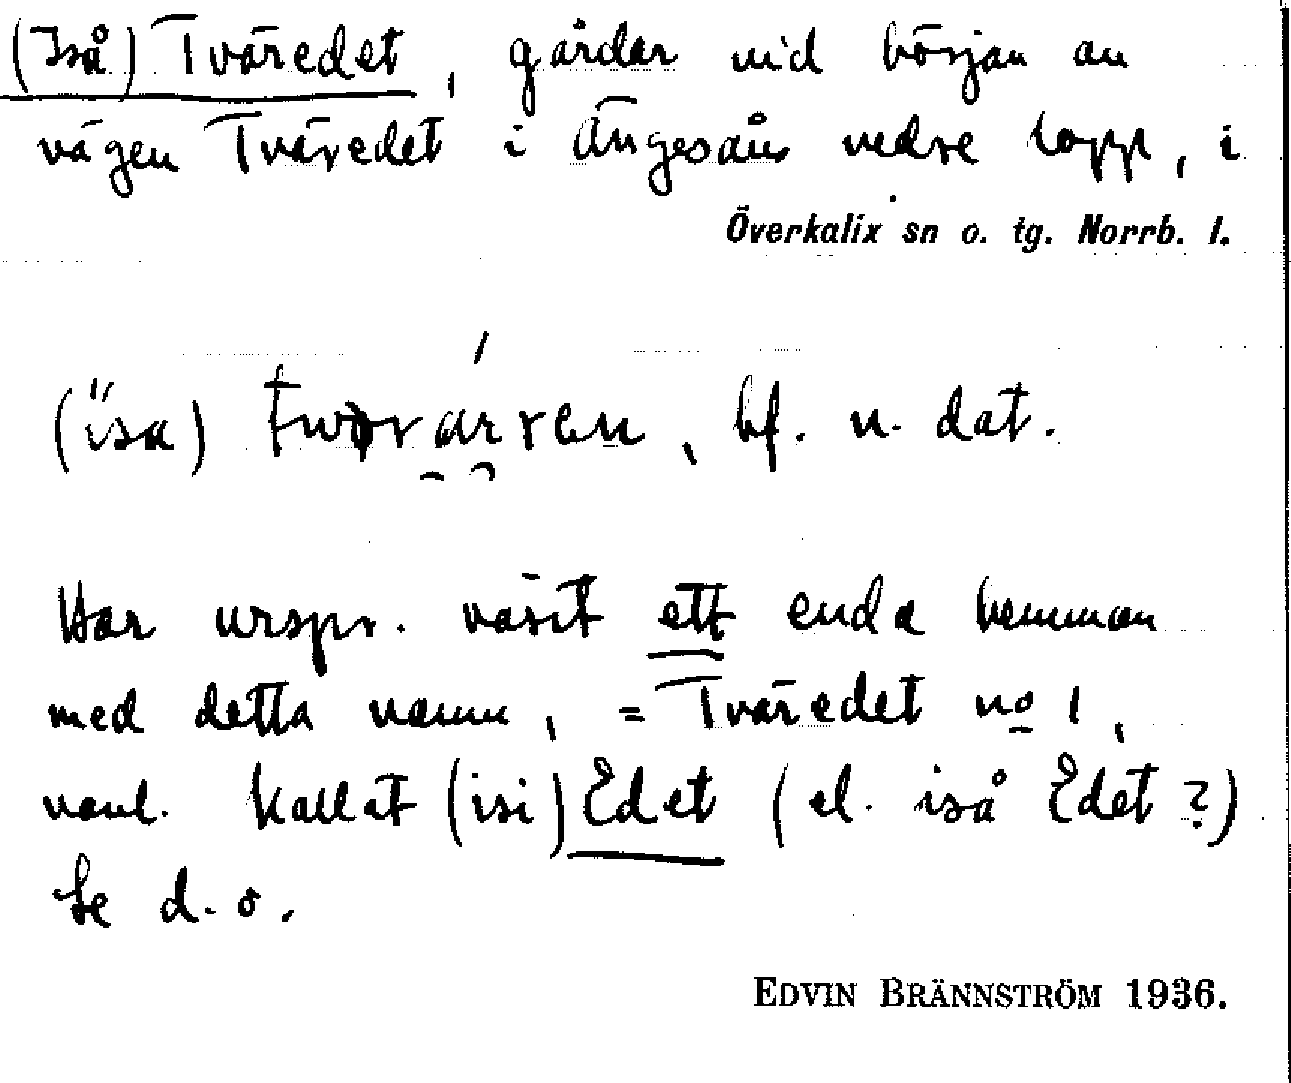 (Iså) Tväredet, gårdar vid början av
vägen Tväredet i Ängesåns nedre lopp, i
Överkalix sn o. tg. Norrb. l.
(isa) bf. n. dat.
Har urspr. varit ett enda hemman
med detta namn, = Tväredet no 1,
vanl. kallat (isi) Edet (el. iså Edet?)
Se d. o.
EDVIN BRÄNNSTRÖM 1936.